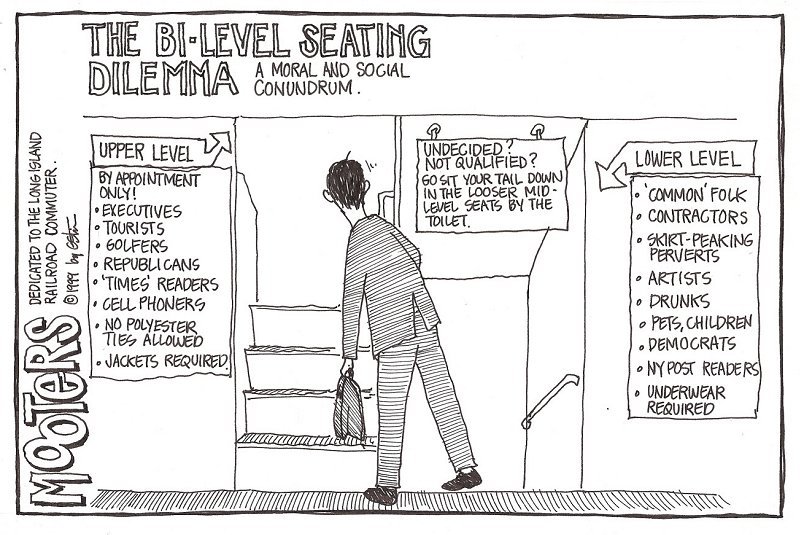 THE BI-LEVEL SEATING
DILEMMA
A MORAL AND SOCIAL
CONUNDRUM.
UPPER LEVEL
BY APPOINTMENT
ONLY!
• EXECUTIVES
• TOURISTS
• GOLFERS
• REPUBLICANS
• 'TIMES' READERS
• CELL PHONERS
• NO POLYESTER
TIES ALLOWED
• JACKETS REQUIRED.
UNDECIDED?
NOT QUALIFIED?
GO SIT YOUR TAIL DOWN
IN THE LOOSER MID-
LEVEL SEATS BY THE
TOILET.
LOWER LEVEL
• 'COMMON' FOLK
• CONTRACTORS
• SKIRT-PEAKING
PERVERTS
• ARTISTS
• DRUNKS
• PETS, CHILDREN
• DEMOCRATS
• NY POST READERS
• UNDERWEAR
REQUIRED
MOOTERS
DEDICATED TO THE LONG ISLAND
RAILROAD COMMUTER.
©1999 by